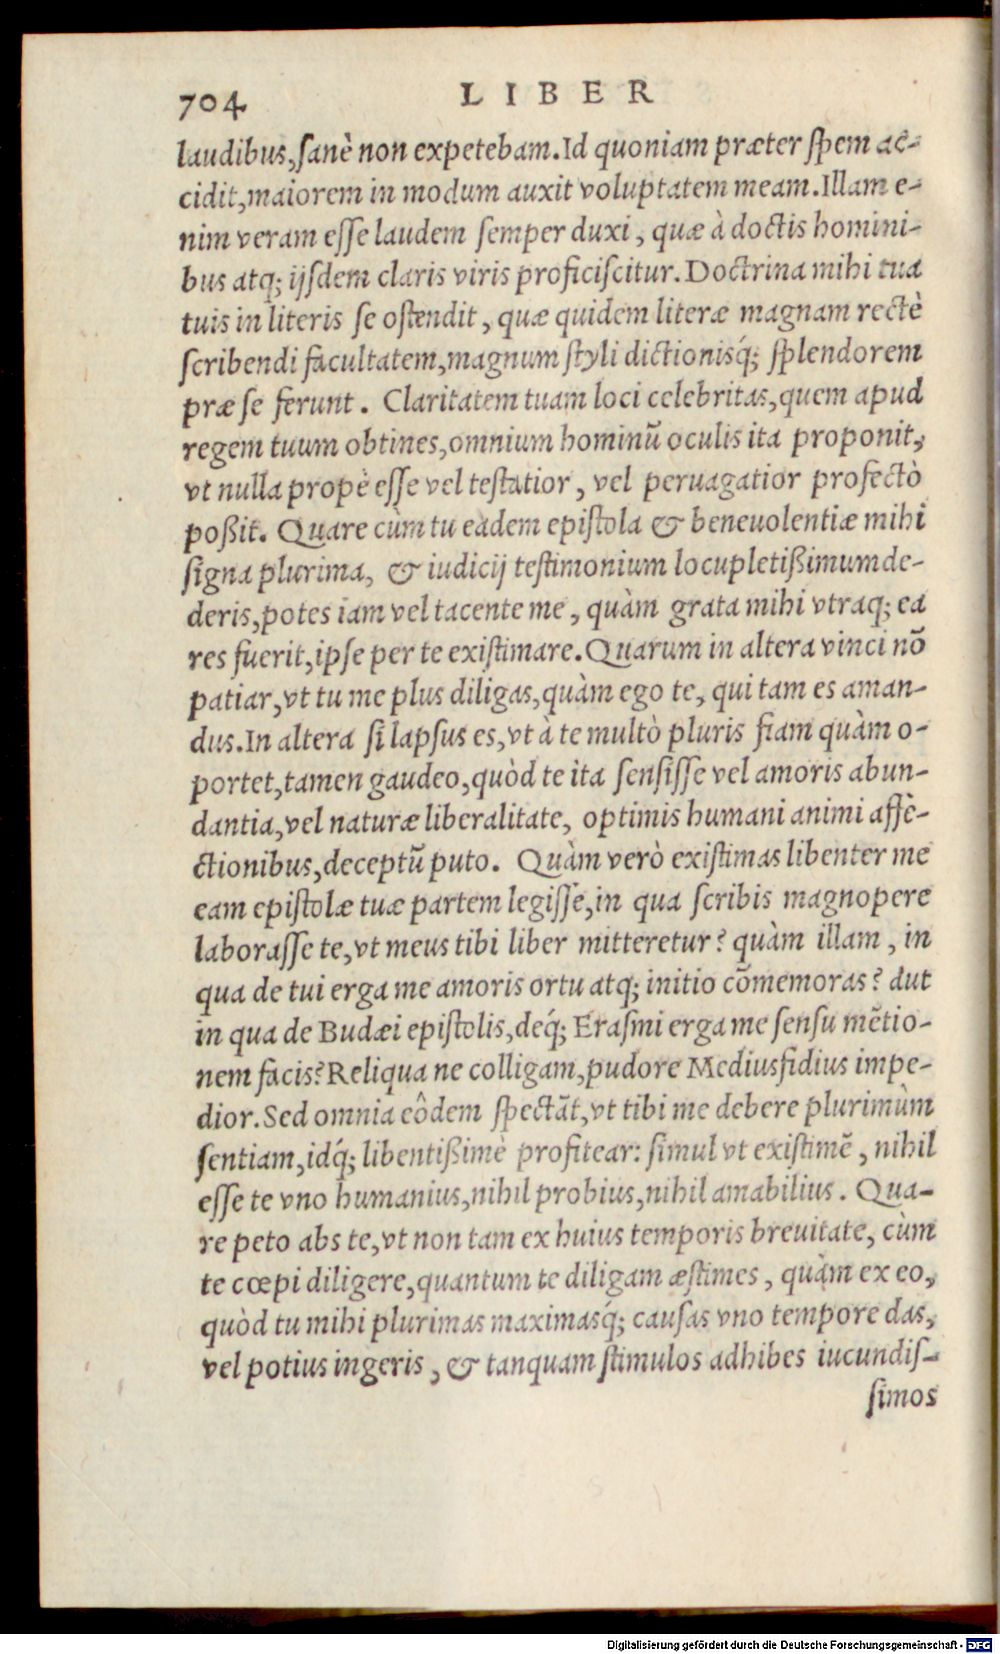 704 LIBER
laudibus, sanè non expetebam. Id quoniam præter spem ac-
cidit, maiorem in modum auxit voluptatem meam. Illam e-
nim veram esse laudem semper duxi, quæ à doctis homini-
bus atq; ijsdem claris viris proficiscitur. Doctrina mihi tua
tuis in literis se ostendit, quæ quidem literæ magnam rectè
scribendi facultatem, magnum styli dictionisq́; splendorem
præ se ferunt. Claritatem tuam loci celebritas, quem apud
regem tuum obtines, omnium hominũ oculis ita proponit,
vt nulla propè esse vel testatior, vel peruagatior profectò
poßit. Quare cùm tu eadem epistola & beneuolentiæ mihi
signa plurima, & iudicij testimonium locupletißimum de-
deris, potes iam vel tacente me, quàm grata mihi vtraq; ea
res fuerit, ipse per te existimare. Quarum in altera vinci nõ
patiar, vt tu me plus diligas, quàm ego te, qui tam es aman-
dus. In altera si lapsus es, vt à te multò pluris fiam quàm o-
portet, tamen gaudeo, quòd te ita sensisse vel amoris abun-
dantia, vel naturæ liberalitate, optimis humani animi affe-
ctionibus, deceptũ puto. Quàm verò existimas libenter me
eam epistolæ tuæ partem legisse, in qua scribis magnopere
laborasse te, vt meus tibi liber mitteretur? quàm illam, in
qua de tui erga me amoris ortu atq; initio cõmemoras? aut
in qua de Budæi epistolis, deq́; Erasmi erga me sensu mẽtio-
nem facis? Reliqua ne colligam, pudore Mediusfidius impe-
dior. Sed omnia eôdem spectãt, vt tibi me debere plurimùm
sentiam, idq́; libentißimè profitear: simul vt existimẽ, nihil
esse te vno humanius, nihil probius, nihil amabilius. Qua-
re peto abs te, vt non tam ex huius temporis breuitate, cùm
te cœpi diligere, quantum te diligam æstimes, quàm ex eo,
quòd tu mihi plurimas maximasq́; causas vno tempore das,
vel potius ingeris, & tanquam stimulos adhibes iucundis-
simos
Digitalisierung gefördert durch die Deutsche Forschungsgemeinschaft - DFG